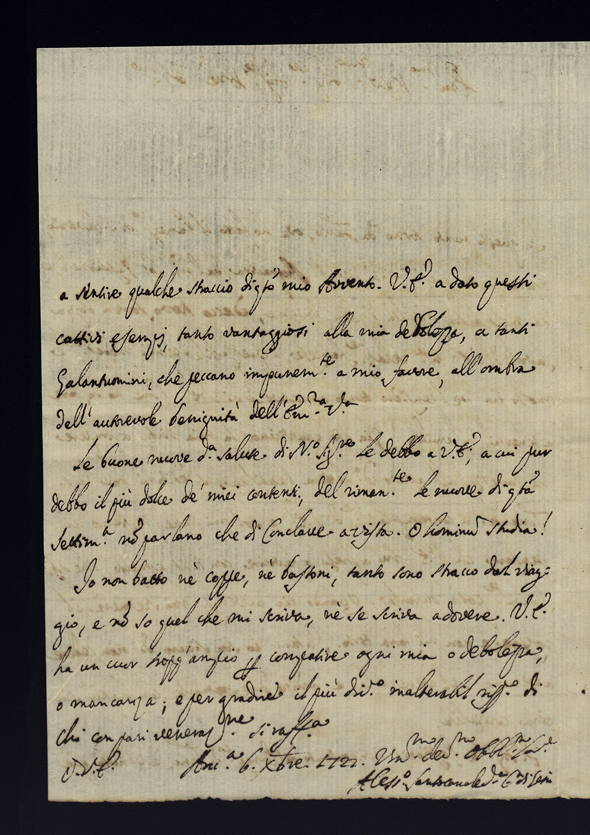 a sentire qualche straccio di q.to mio Avvento. V. E. a dato questi
cattivi esempj, tanto vantaggiosi alla mia debolezza, a tanti
Galantuomini, che peccano impunem.te a mio favore, all'ombra
dell'autorevole benignità dell'Em.za V.ra
Le buone nuove d.a salute di N.o Sig.re le debbo a V. E., a cui pur
debbo il più dolce de' miei contenti, del riman.te le nuove di q.ta
settim.a nō parlano che di Conclave a vista. O hominū studia!
Io non batto nè coppe, nè bastoni, tanto sono stracco dal viag-
gio, e nō so quel che mi scriva, nè se scriva a dovere. V. E.
ha un cuor tropp'ampio p compatire ogni mia o debolezza,
o mancanza; e per gradire il più div.o inalterabil riss.o di
chi con pari veneraz.ne si raff.a
D. V. E. Anc.a 6. Xbre. 1721. Um.mo dev.mo Obbl.mo
Aless.o